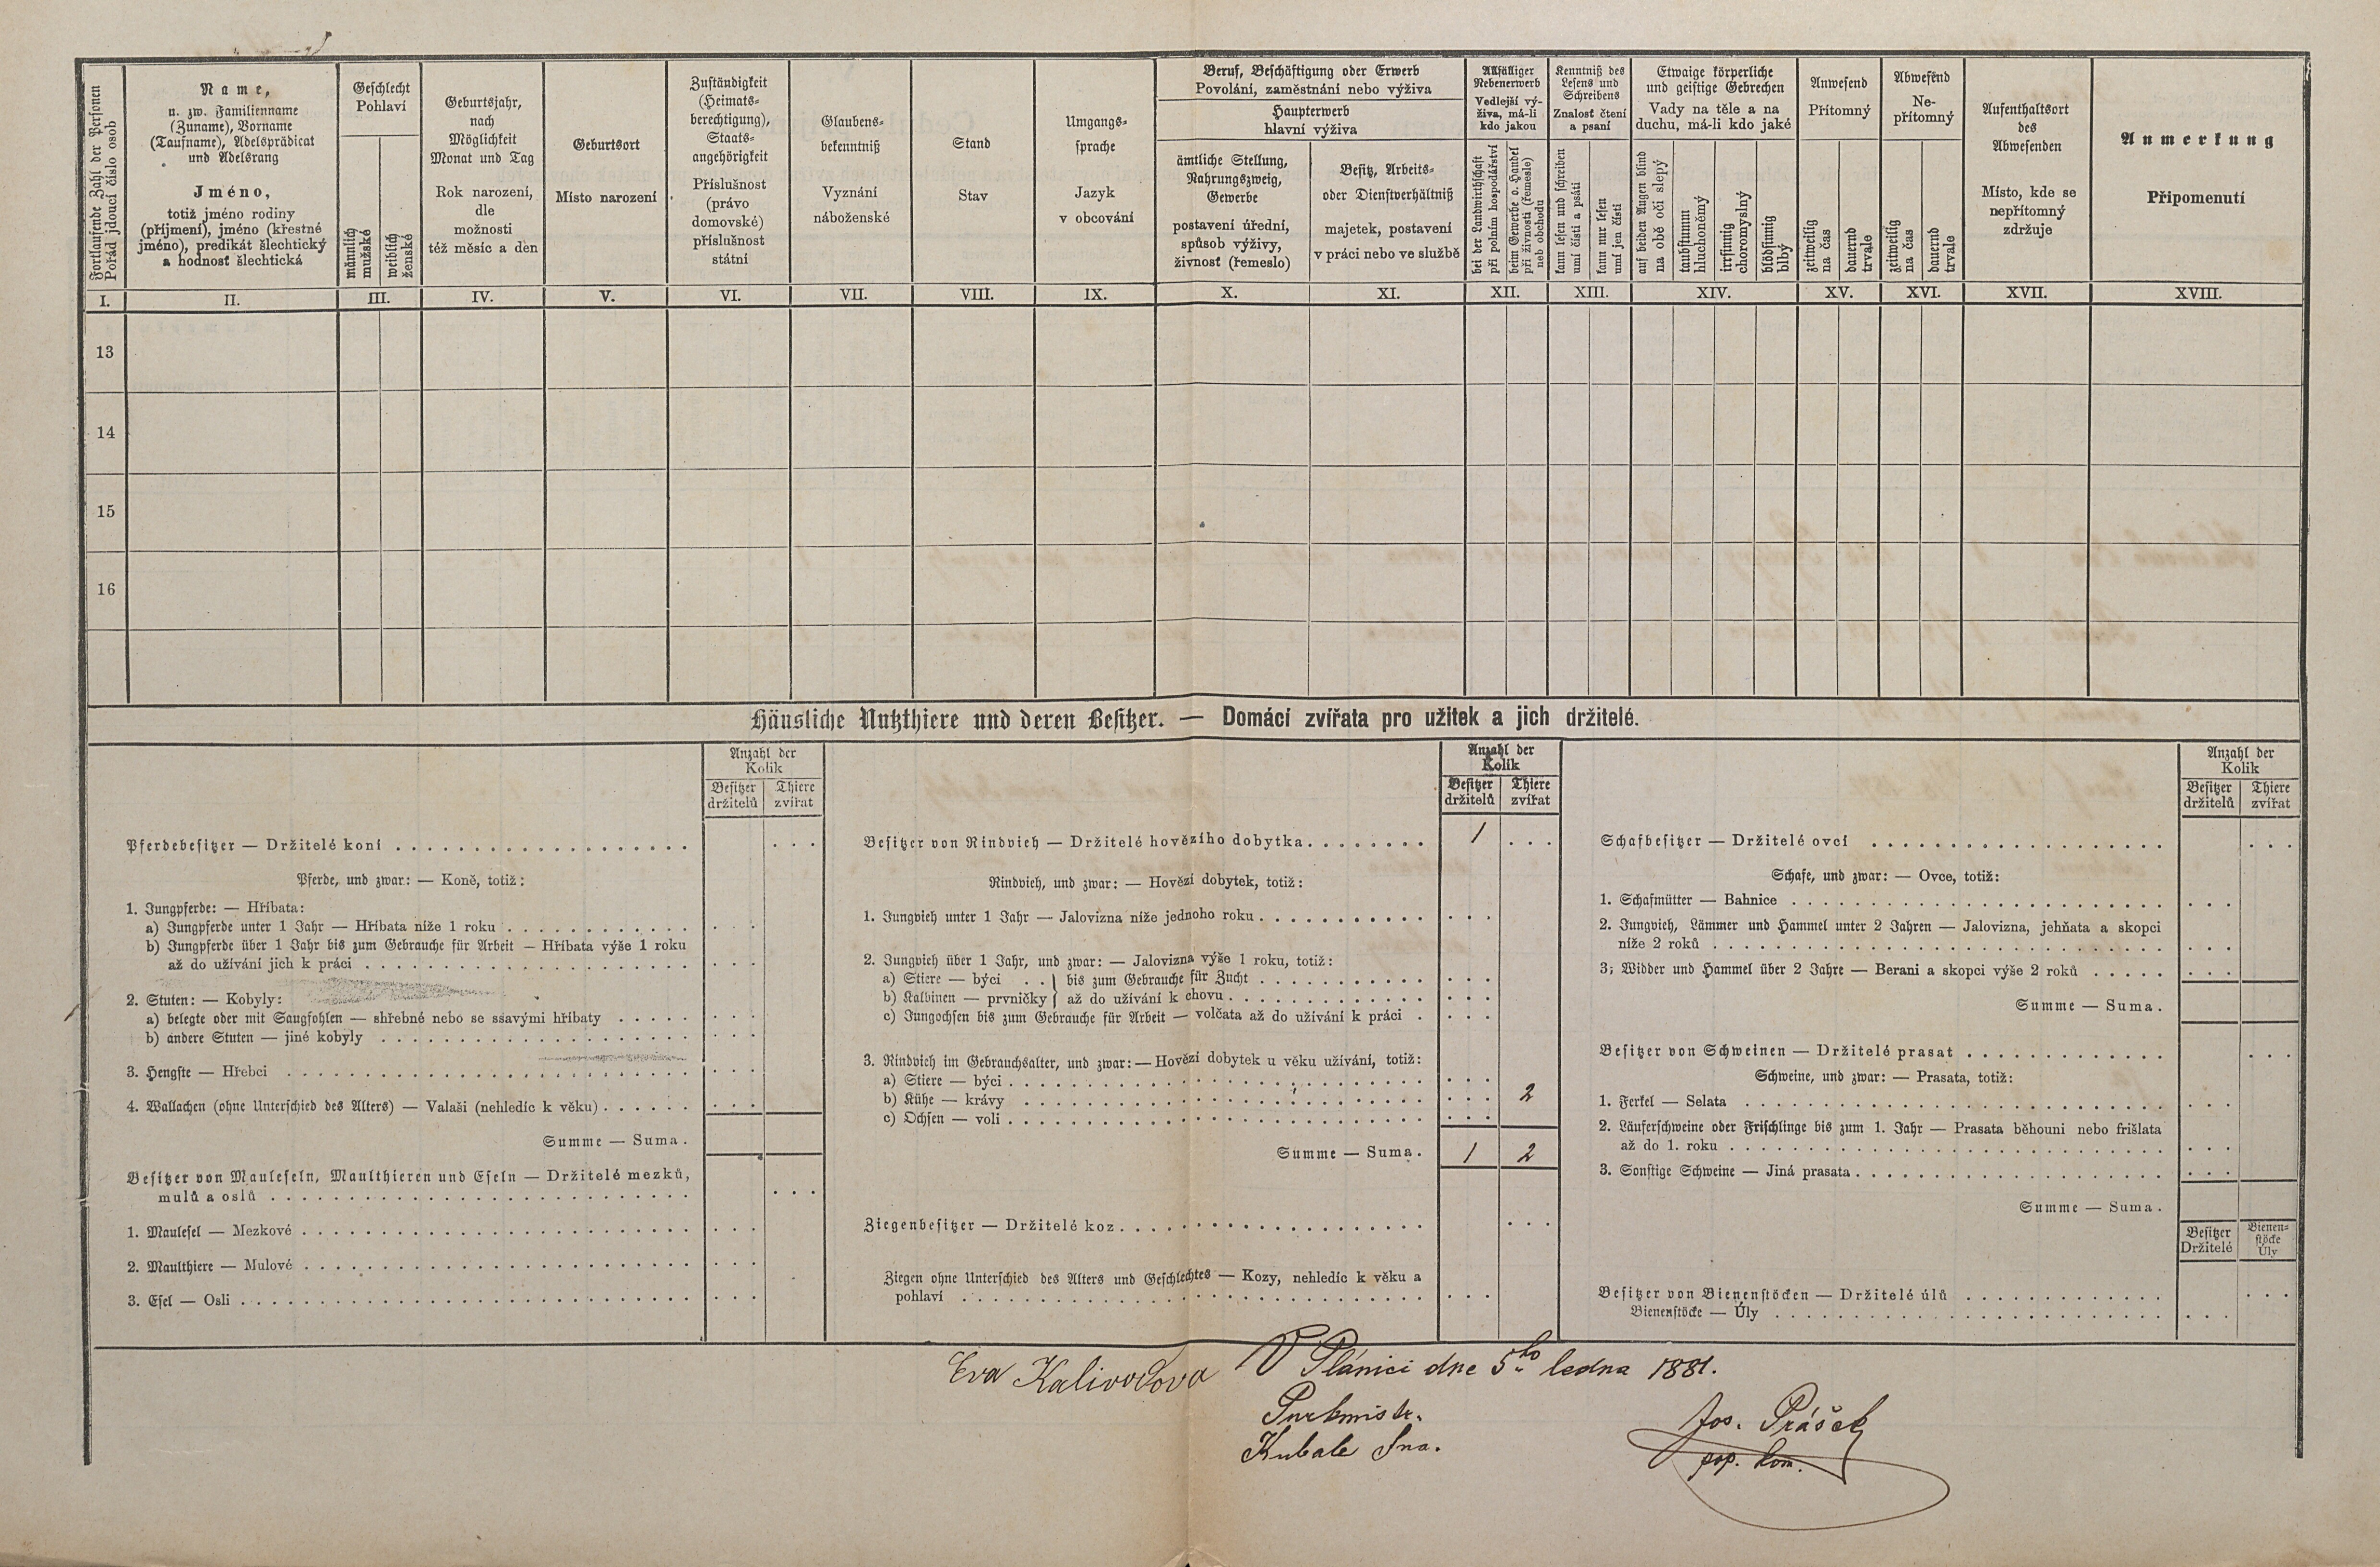 Fortlaufende Zahl der Personen
Pořád jdoucí číslo osob
Name,
u. zw. Familienname
(Zuname), Vorname
(Taufname), Adelsprädicat
und Adelsrang
Jméno,
totiž jméno rodiny
(příjmení), jméno (křestné
jméno), predikát šlechtický
a hodnosť šlechtická
Geschlecht
Pohlaví
männlich
mužské
weiblich
ženské
Geburtsjahr,
nach
Möglichkeit
Monat und Tag
Rok narození,
dle
možnosti
též měsíc a den
Geburtsort
Místo narození
Zuständigkeit
(Heimats-
berechtigung),
Staats-
angehörigkeit
Příslušnost
(právo
domovské)
příslušnost
státní
Glaubens-
bekenntniß
Vyznání
náboženské
Stand
Stav
Umgangs-
sprache
Jazyk
v obcování
Beruf, Beschäftigung oder Erwerb
Povolání, zaměstnání nebo výživa
Haupterwerb
hlavní výživa
ämtliche Stellung,
Nahrungszweig,
Gewerbe
postavení úřední,
spůsob výživy,
živnosť (řemeslo)
Besitz, Arbeits-
oder Dienstverhältniß
majetek, postavení
v práci nebo ve službě
Allfälliger
Nebenerwerb
Vedlejší vý-
živa, má-li
kdo jakou
bei der Landwirthschaft
při polním hospodářství
beim Gewerbe o. Handel
při živnosti (řemesle)
neb obchodu
Kenntniß des
Lesens und
Schreibens
Znalosť čtení
a psaní
kann lesen und schreiben
umí čísti a psáti
kann nur lesen
umí jen čísti
Etwaige körperliche
und geistige Gebrechen
Vady na těle a na
duchu, má-li kdo jaké
auf beiden Augen blind
na obě oči slepý
taubstumm
hluchoněmý
irrsinnig
choromyslný
blödsinnig
blbý
Anwesend
Přítomný
zeitweilig
na čas
dauernd
trvale
Abwesend
Ne-
přítomný
zeitweilig
na čas
dauernd
trvale
Aufenthaltsort
des
Abwesenden
Místo, kde se
nepřítomný
zdržuje
Anmerkung
Připomenutí
I. II. III. IV. V. VI. VII. VIII. IX. X. XI. XII. XIII. XIV. XV. XVI. XVII. XVIII.
13
14
15
16
Häusliche Nutzthiere und deren Besitzer. — Domácí zvířata pro užitek a jich držitelé.
Anzahl der
Kolik
Besitzer Thiere
držitelů zvířat
Pferdebesitzer — Držitelé koní
Pferde, und zwar: — Koně, totiž:
1. Jungpferde: — Hříbata:
a) Jungpferde unter 1 Jahr — Hříbata níže 1 roku
b) Jungpferde über 1 Jahr bis zum Gebrauche für Arbeit — Hříbata výše 1 roku
až do užívání jich k práci
2. Stuten: — Kobyly:
a) belegte oder mit Saugfohlen — shřebné nebo se ssavými hříbaty
b) andere Stuten — jiné kobyly
3. Hengste — Hřebci
4. Wallachen (ohne Unterschied des Alters) — Valaši (nehledíc k věku)
Summe — Suma.
Besitzer von Mauleseln, Maulthieren und Eseln — Držitelé mezků,
mulů a oslů
1. Maulesel — Mezkové
2. Maulthiere — Mulové
3. Esel — Osli
Anzahl der
Kolik
Besitzer Thiere
držitelů zvířat
Besitzer von Rindvieh — Držitelé hovězího dobytka 1
Rindvieh, und zwar: — Hovězí dobytek, totiž:
1. Jungvieh unter 1 Jahr — Jalovizna níže jednoho roku
2. Jungvieh über 1 Jahr, und zwar: — Jalovizna výše 1 roku, totiž:
a) Stiere — býci . . } bis zum Gebrauche für Zucht
b) Kalbinen — prvničky } až do užívání k chovu
c) Jungochsen bis zum Gebrauche für Arbeit — volčata až do užívání k práci
3. Rindvieh im Gebrauchsalter, und zwar: — Hovězí dobytek u věku užívání, totiž:
a) Stiere — býci
b) Kühe — krávy 2
c) Ochsen — voli
Summe — Suma. 1 2
Ziegenbesitzer — Držitelé koz
Ziegen ohne Unterschied des Alters und Geschlechtes — Kozy, nehledíc k věku a
pohlaví
Anzahl der
Kolik
Besitzer Thiere
držitelů zvířat
Schafbesitzer — Držitelé ovcí
Schafe, und zwar: — Ovce, totiž:
1. Schafmütter — Bahnice
2. Jungvieh, Lämmer und Hammel unter 2 Jahren — Jalovizna, jehňata a skopci
níže 2 roků
3. Widder und Hammel über 2 Jahre — Berani a skopci výše 2 roků
Summe — Suma.
Besitzer von Schweinen — Držitelé prasat
Schweine, und zwar: — Prasata, totiž:
1. Ferkel — Selata
2. Läuferschweine oder Frischlinge bis zum 1. Jahr — Prasata běhouni nebo frišlata
až do 1. roku
3. Sonstige Schweine — Jiná prasata
Summe — Suma.
Besitzer Bienen-
stöcke
Držitelé Úly
Besitzer von Bienenstöcken — Držitelé úlů
Bienenstöcke — Úly
Eva Kalivodova
V Plánici dne 5ho ledna 1881.
Purkmistr.
Kubale
Jos. Prášek
pop. kom.